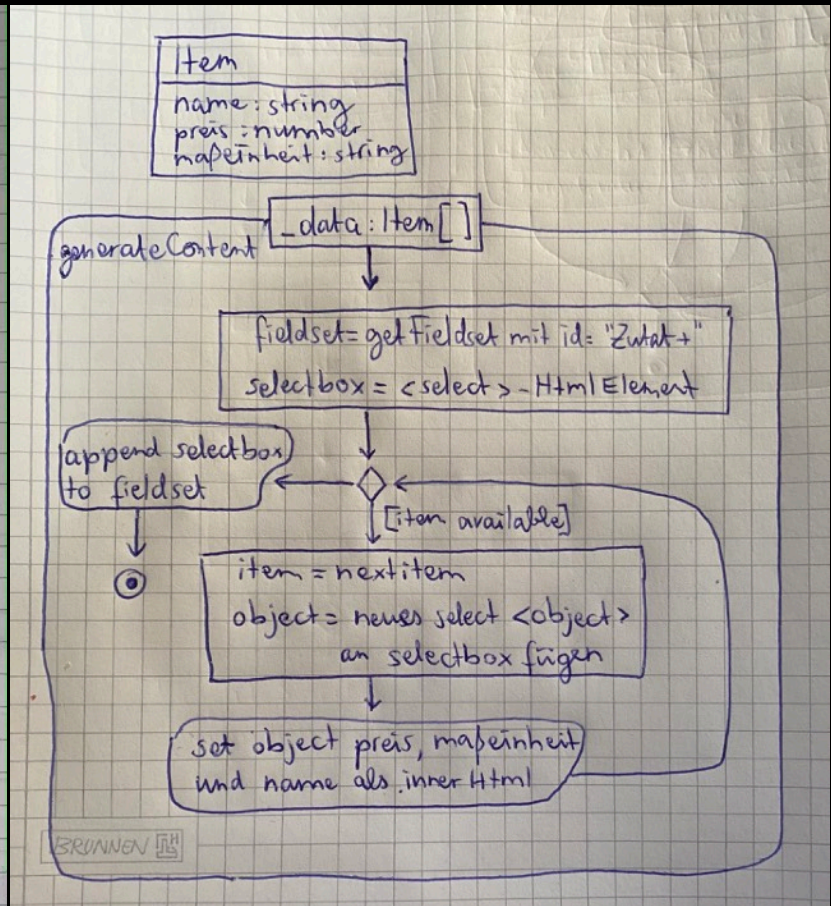 Item
name: string
preis: number
maßeinheit: string
_data: Item[]
generateContent
fieldset= getFieldset mit id= "Zutat+"
selectbox = <select> - Html Element
append selectbox
to fieldset
[item available]
item = nextitem
object = neues select <object>
an selectbox fügen
set object preis, maßeinheit
und name als innerHtml
BRUNNEN